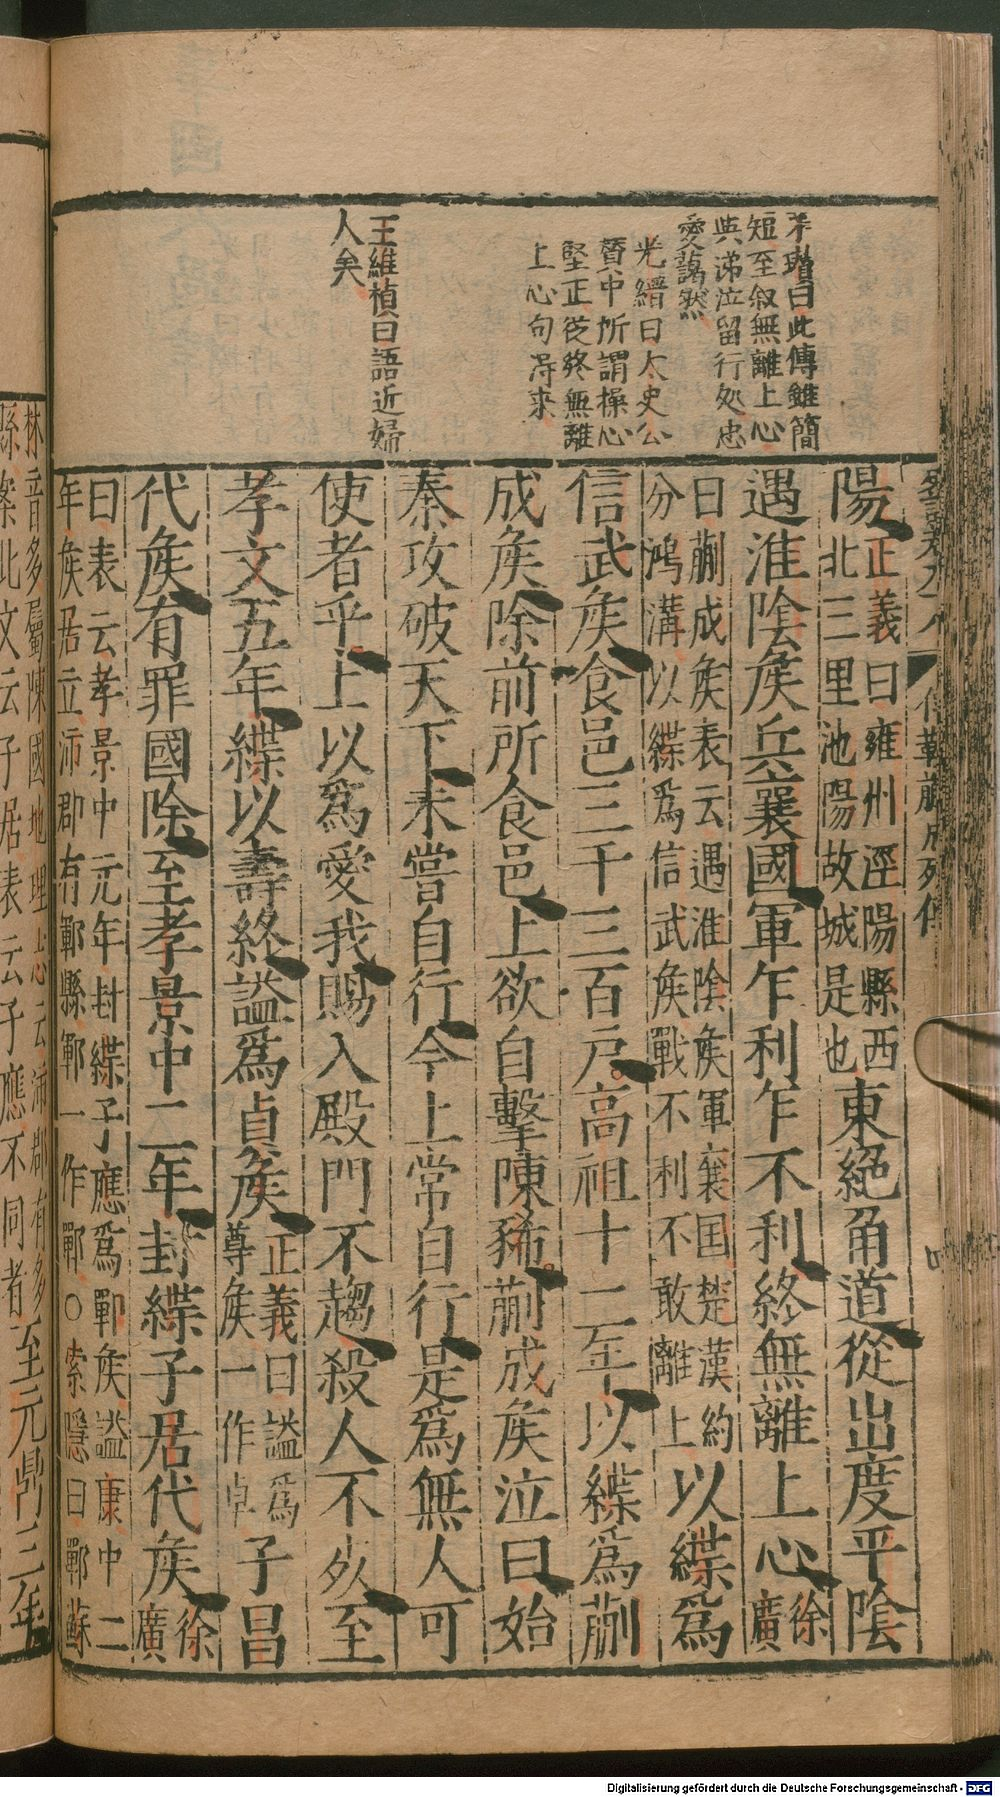 茅瓚曰此傳雖簡
短至叙無離上心
與涕泣留行处忠
愛藹然
光縉曰太史公
賛中所謂操心
堅正從終無離
上心句得來
王維楨曰語近婦
人矣
傅靳蒯成列傳
陽
正義曰雍州涇陽縣西
北三里池陽故城是也
東絕甬道從出度平陰
遇淮陰矦兵襄國軍乍利乍不利終無離上心
徐
廣
曰蒯成矦表云遇淮陰矦軍襄国楚漢約
分鴻溝以緤爲信武矦戰不利不敢離上
以緤爲
信武矦食邑三千三百戶高祖十二年以緤爲蒯
成矦除前所食邑上欲自擊陳豨蒯成矦泣曰始
秦攻破天下未嘗自行今上常自行是爲無人可
使者乎上以爲愛我賜入殿門不趨殺人不死至
孝文五年緤以壽終謚爲貞矦
正義曰謚爲
尊矦一作卓
子昌
代矦有罪國除至孝景中二年封緤子居代矦
徐
廣
曰表云孝景中元年封緤子應爲鄲矦謚康中二
年矦居立沛郡有鄲縣鄲一作鄲〇索隱曰鄲蘇
林音多屬陳國地理志云沛郡有多
縣案此文云子居表云子應不同者
至元鼎三年
Digitalisierung gefördert durch die Deutsche Forschungsgemeinschaft - DFG